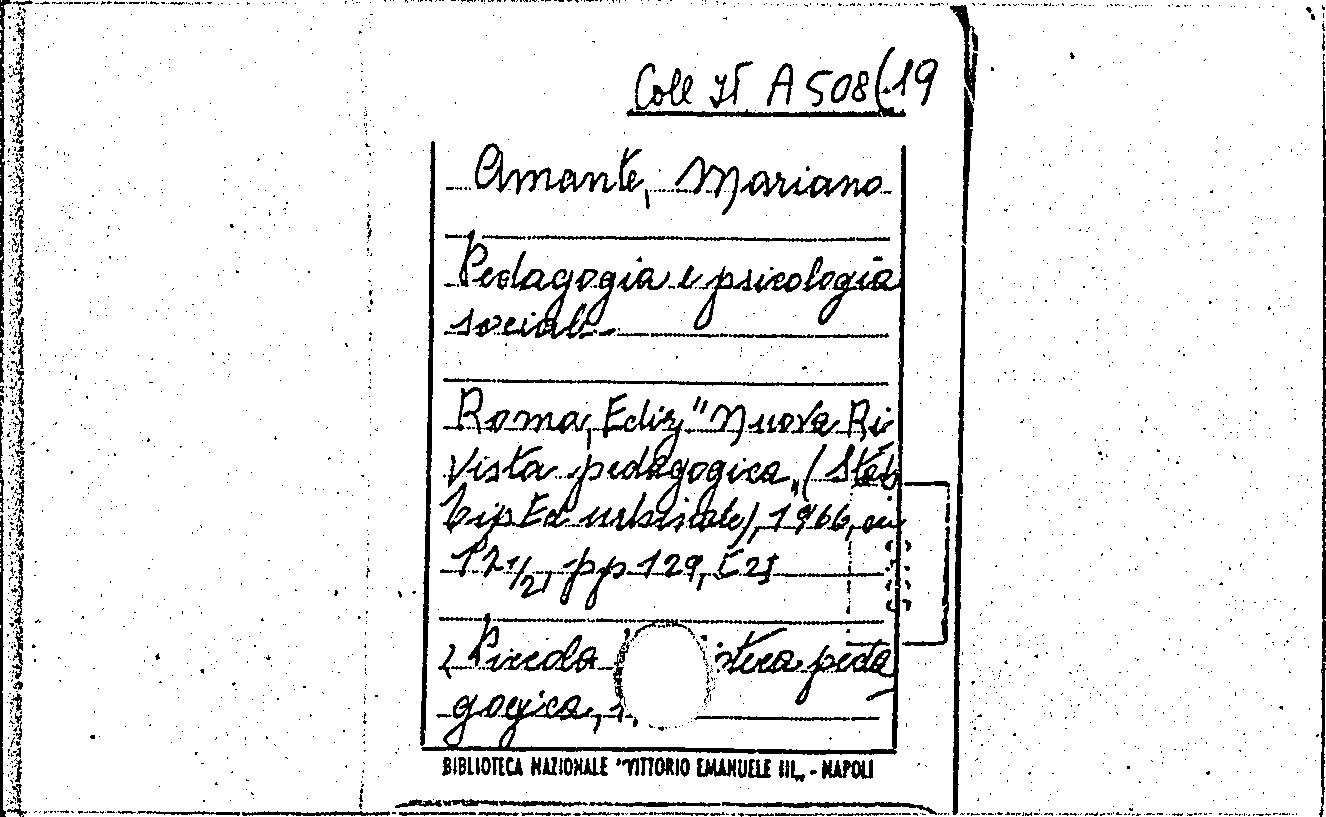 Coll It A 508(19
Amante, Mariano
Pedagogia e psicologia
sociale
Roma, Ediz "Nuova Ri
vista pedagogica" (Stab
Tip Ed urbinate), 1966, in
12 1/2, pp 129,
(Piccola peda
gogica, 1.
BIBLIOTECA NAZIONALE "VITTORIO EMANUELE III" - NAPOLI